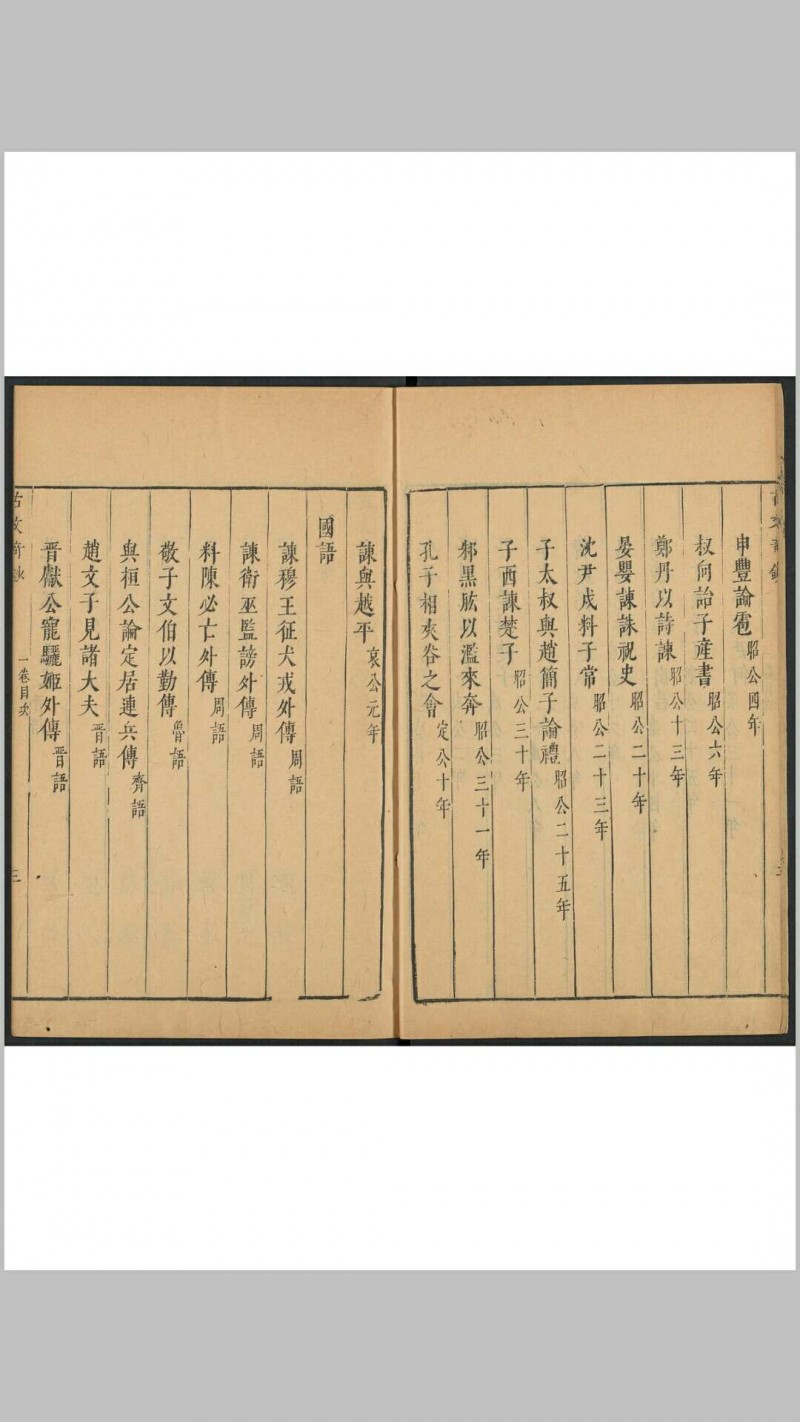 申豐論雹 昭公四年
叔向詒子產書 昭公六年
鄭丹以詩諫 昭公十三年
晏嬰諫誅祝史 昭公二十年
沈尹戍料子常 昭公二十三年
子太叔與趙簡子論禮 昭公二十五年
子西諫楚子 昭公三十年
邾黑肱以濫來奔 昭公三十一年
孔子相夾谷之會 定公十年
諫與越平 哀公元年
國語
諫穆王征犬戎外傳 周語
諫衛巫監謗外傳 周語
料陳必亡外傳 周語
敬子文伯以勤傳 魯語
與桓公論定居連兵傳 齊語
趙文子見諸大夫 晉語
晉獻公寵驪姬外傳 晉語
一卷目次
三